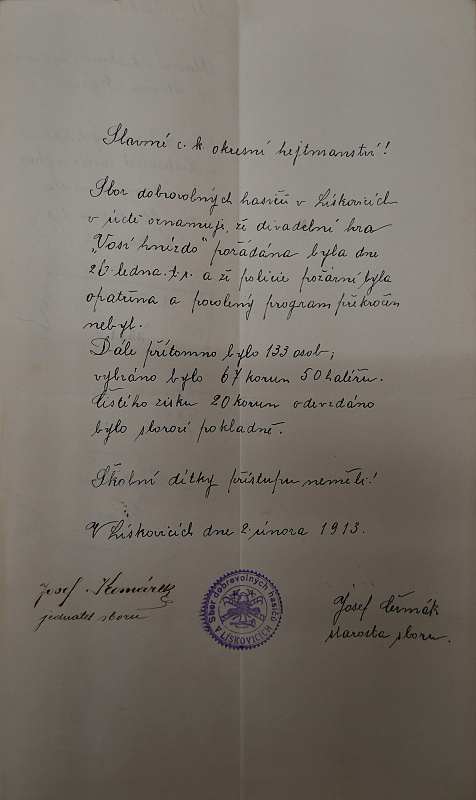 Slavné c. k. okresní hejtmanství!
Sbor dobrovolných hasičů v Lískovicích
v úctě oznamuji, že divadelní hra
„Vosí hnízdo" pořádána byla dne
26. ledna t.r. a že policie požární byla
opatřena a povolený program překročen
nebyl.
Dále přítomno bylo 133 osob;
vybráno bylo 67 korun 50 haléřů.
Čistého zisku 20 korun odevzdáno
bylo sborové pokladně.
Školní dítky přístupu neměli!
V Lískovicích dne 2. února 1913.
Josef Komárek
jednatel sboru
Sbor dobrovolných hasičů
V LISKOVICÍCH
Josef Čermák
starosta sboru.